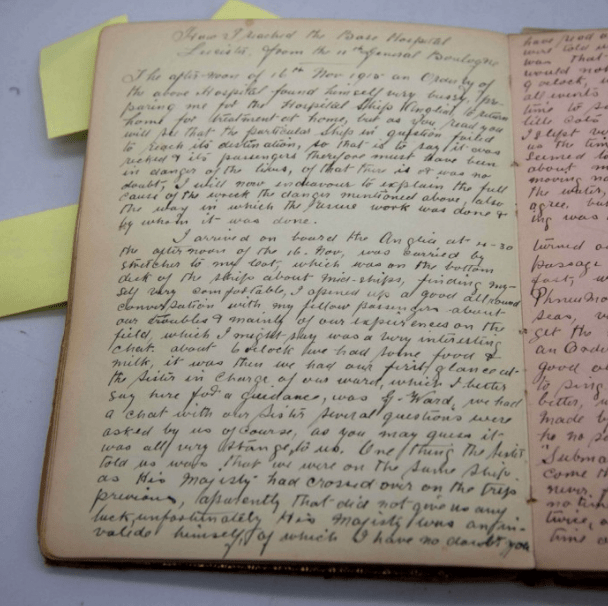 How I reached the Base Hospital
Leicester, from the 11th General Boulogne
The after-noon of 16th Nov 1915 an Orderly of
the above Hospital found himself very bussy, pre-
paring me for the Hospital Ship Anglia to return
home for treatment at home, but as you read you
will see that the particular ship in question failed
to reach its destination, so that is to say it was
recked & its passengers therefore must have been
in danger of the lives, of that there is & was no
doubt, I will now endeavour to explain the full
cause of the wreck the danger mentioned above, also
the way in which the rescue work was done &
by whom it was done.
I arrived on board the Anglia at 4-30
the afternoon of the 16. Nov, was carried by
stretcher to my cot, which was on the bottom
deck of the ship about mid-ships, finding my-
self very comfortable, I opened up a good all round
conversation with my fellow passengers about
our troubles & mainly of our experiences on the
field, which I might say was a very interesting
chat. about 6 oclock we had some food &
milk, it was then we had our first glance at
the Sister in Charge of our ward, which I better
say here for a guidance, was G. Ward, we had
a chat with our Sister several questions were
asked by us of course, as you may guess it
was all very strange to us. One thing the Sister
told us was that we were on the same ship
as His Majesty had crossed over on the trip
previous, apparently that did not give us any
luck, unfortunately His Majesty was an in-
valide himself, of which I have no doubt you
have read
were told
was that
would not
9 oclock,
all events
time to
I left
us the
seemed to
about
moving
the water,
agree. but
ing was
turned
passage
fact,
seas,
get the
an
good
to sing
better,
made
he no
"Subma
come
never.
no time
twice,
time